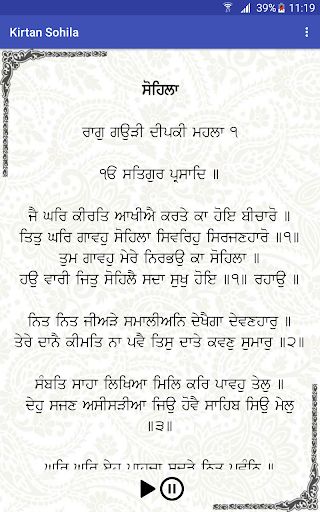 39% 11:19
Kirtan Sohila
ਸੋਹਿਲਾ
ਰਾਗੁ ਗਉੜੀ ਦੀਪਕੀ ਮਹਲਾ ੧
ੴ ਸਤਿਗੁਰ ਪ੍ਰਸਾਦਿ ॥
ਜੈ ਘਰਿ ਕੀਰਤਿ ਆਖੀਐ ਕਰਤੇ ਕਾ ਹੋਇ ਬੀਚਾਰੋ ॥
ਤਿਤੁ ਘਰਿ ਗਾਵਹੁ ਸੋਹਿਲਾ ਸਿਵਰਿਹੁ ਸਿਰਜਣਹਾਰੋ ॥੧॥
ਤੁਮ ਗਾਵਹੁ ਮੇਰੇ ਨਿਰਭਉ ਕਾ ਸੋਹਿਲਾ ॥
ਹਉ ਵਾਰੀ ਜਿਤੁ ਸੋਹਿਲੈ ਸਦਾ ਸੁਖੁ ਹੋਇ ॥੧॥ ਰਹਾਉ ॥
ਨਿਤ ਨਿਤ ਜੀਅੜੇ ਸਮਾਲੀਅਨਿ ਦੇਖੈਗਾ ਦੇਵਣਹਾਰੁ ॥
ਤੇਰੇ ਦਾਨੈ ਕੀਮਤਿ ਨਾ ਪਵੈ ਤਿਸੁ ਦਾਤੇ ਕਵਣੁ ਸੁਮਾਰੁ ॥੨॥
ਸੰਬਤਿ ਸਾਹਾ ਲਿਖਿਆ ਮਿਲਿ ਕਰਿ ਪਾਵਹੁ ਤੇਲੁ ॥
ਦੇਹੁ ਸਜਣ ਅਸੀਸੜੀਆ ਜਿਉ ਹੋਵੈ ਸਾਹਿਬ ਸਿਉ ਮੇਲੁ
॥੩॥
ਘਰਿ ਘਰਿ ਏਹੋ ਪਾਹੁਚਾ ਸਦੜੇ ਨਿਤ ਪਵੰਨਿ ॥